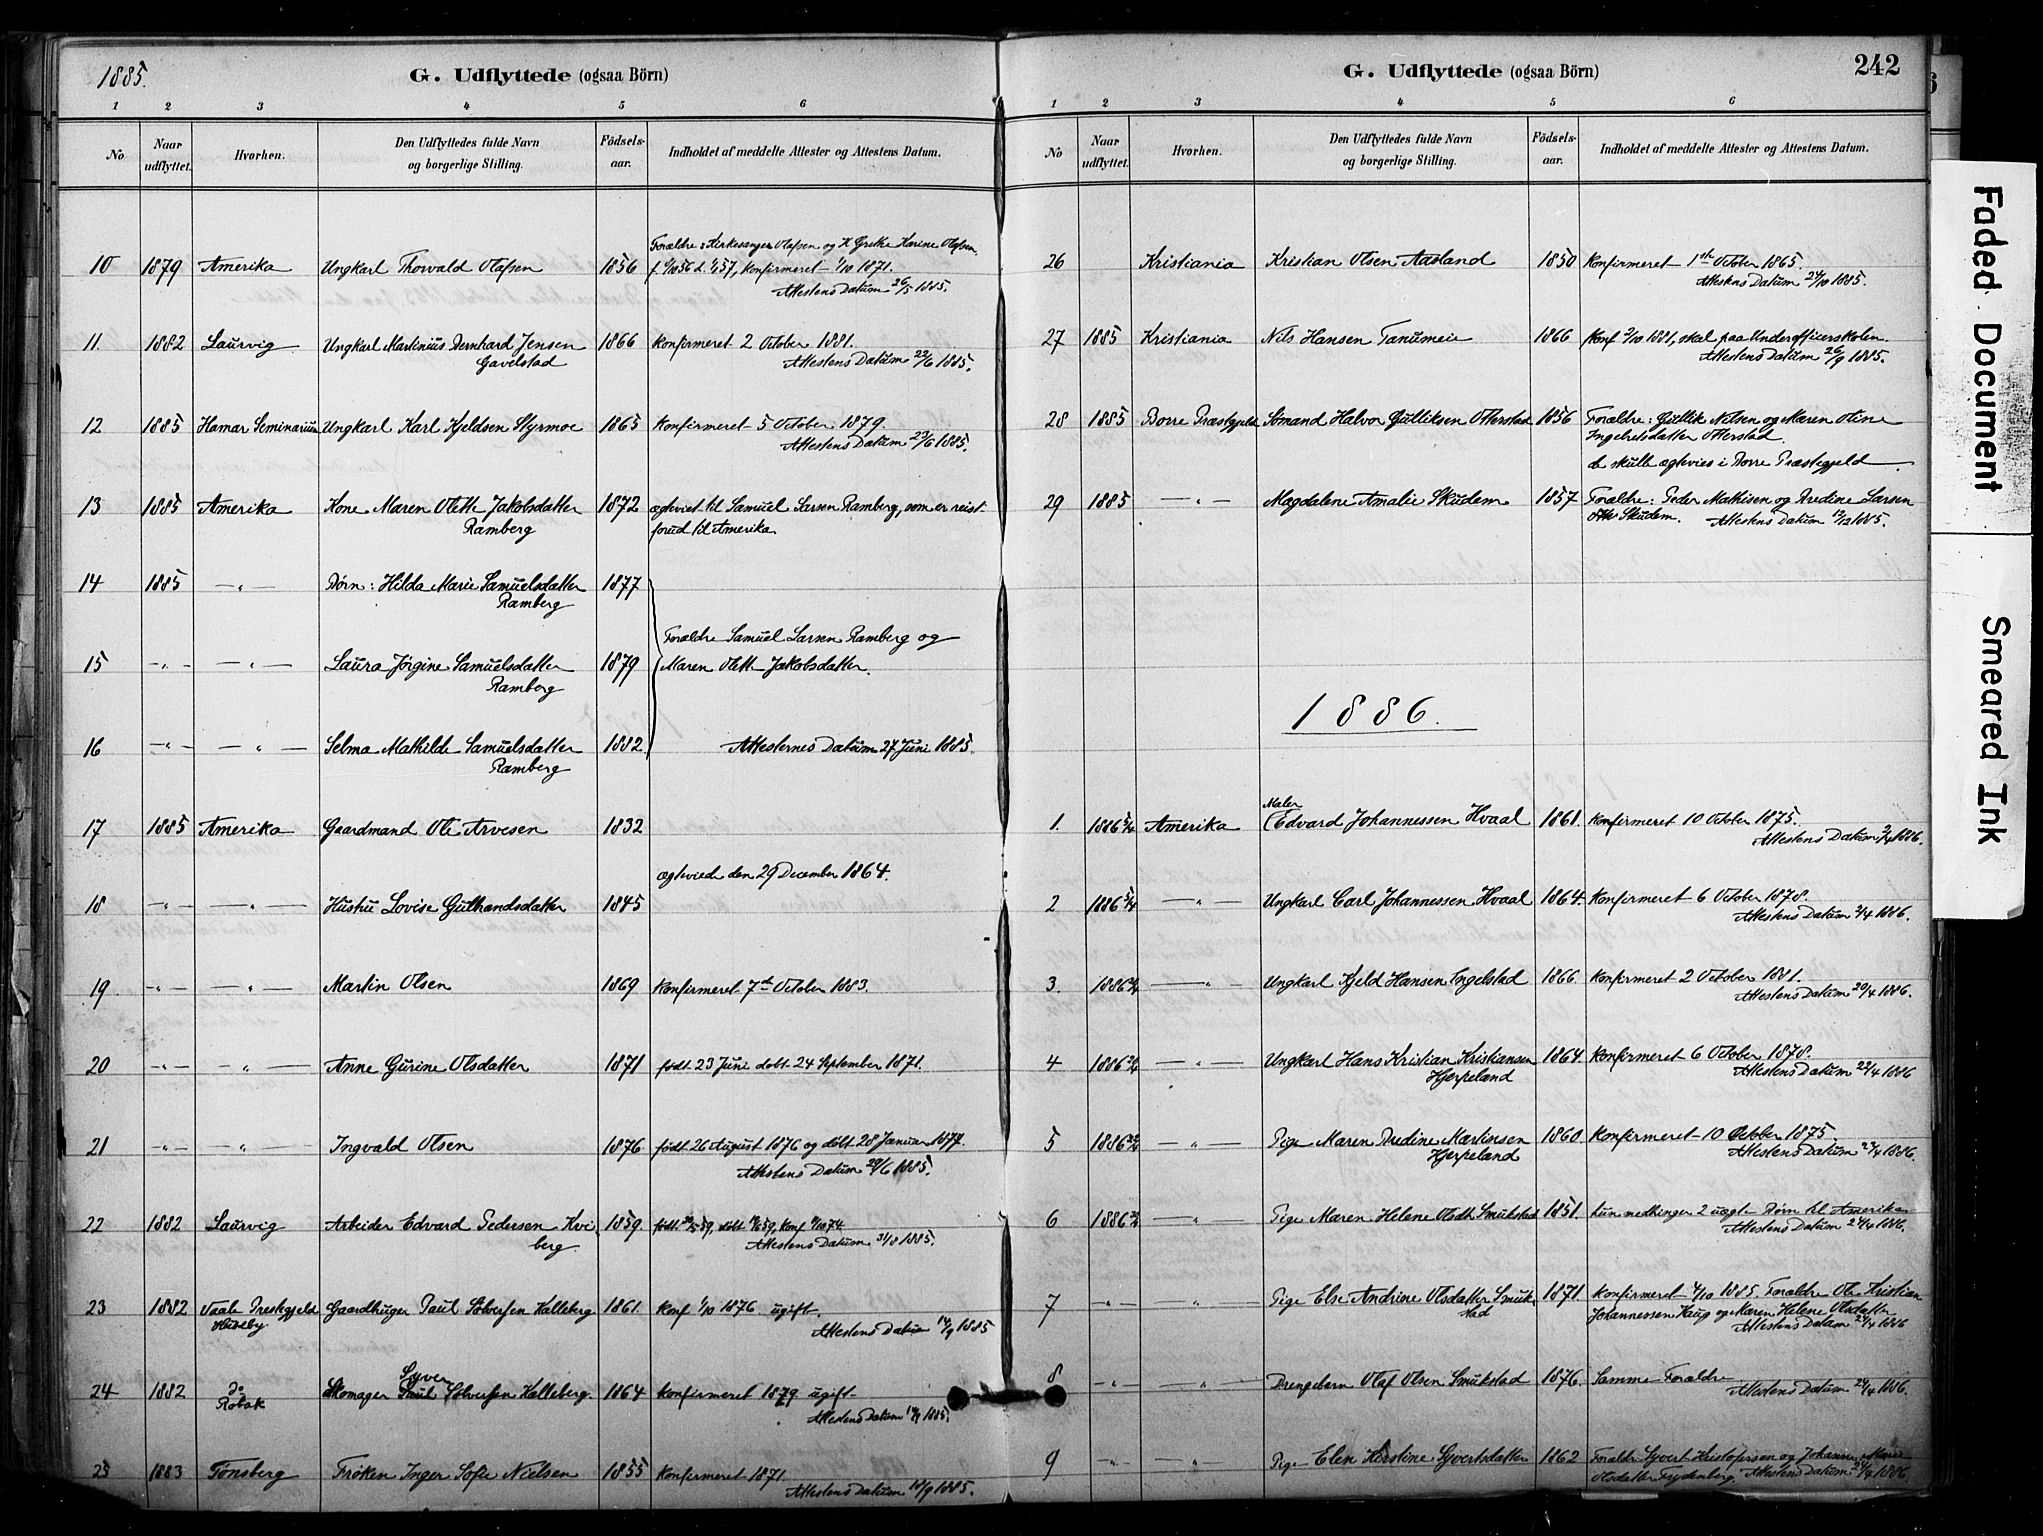 1885.
G. Udflyttede (ogsaa Börn)
1 2 3 4 5 6
No
Naar udflyttet.
Hvorhen.
Den Udflyttedes fulde Navn og borgerlige Stilling.
Födsels-aar.
Indholdet af meddelte Attester og Attestens Datum.
Forældre: Kirkesanger Olafsen og H. Grethe Karine Olafsen
10 1879 Amerika Ungkarl Thorvald Olafsen 1856 konfirmeret 1/10 1871.
Attestens Datum 26/5 1885.
11 1882 Laurvig Ungkarl Martinius Bernhard Jensen 1866 Konfirmeret 2 October 1881.
Gavelstad Attestens Datum 22/6 1885.
12 1885 Hamar Seminarium Ungkarl Karl Kjeldsen Styrmoe 1865 Konfirmeret 5 October 1879.
Attestens Datum 23/6 1885.
13 1885 Amerika Kone Maren Olette Jakobsdatter 1872 ægteviet til Samuel Larsen Ramberg, som er reist
Ramberg forud til Amerika.
14 1885 —„— Børn: Hilda Marie Samuelsdatter 1877
Ramberg
Forældre Samuel Larsen Ramberg og
15 —„— —„— Laura Jørgine Samuelsdatter 1879 Maren Olette Jakobsdatter.
Ramberg
16 —„— —„— Selma Mathilde Samuelsdatter 1882 Attesternes Datum 27 Juni 1885.
Ramberg
17 1885 Amerika Gaardmand Ole Arvesen 1832
ægteviede den 29 December 1864.
18 —„— —„— Hustru Lovise Gulbrandsdatter 1845
19 —„— —„— Martin Olsen 1869 Konfirmeret 7de October 1883.
20 —„— —„— Anne Gurine Olsdatter 1871 født 23 Juni døbt 24 September 1871.
21 —„— —„— Ingvald Olsen 1876 født 26 August 1876 og døbt 28 Januar 1877.
Attestens Datum 29/6 1885.
22 1882 Laurvig Arbeider Edvard Pedersen Kvi 1859.
berg. Attestens Datum 31/8 1885.
23 1882 Vaale Prestegjeld Gaardbruger Paul Sølversen Kalleberg 1861. Konf 1/10 1876. ugift.
Attestens Datum 14/9 1885
Syver
24 1882 do Skomager Paul Sølversen Kalleberg. 1864 Konfirmeret 1879 ugift
Robak Attestens Datum 14/9 1885.
25 1883 Tønsberg Frøken Inger Sofie Nielsen 1855 Konfirmeret 1871.
Attestens Datum 18/9 1885.
G. Udflyttede (ogsaa Börn)
242
1 2 3 4 5 6
No
Naar udflyttet.
Hvorhen.
Den Udflyttedes fulde Navn og borgerlige Stilling.
Födsels-aar.
Indholdet af meddelte Attester og Attestens Datum.
26 Kristiania Kristian Olsen Aasland 1850 Konfirmeret 1ste October 1865.
Attestens Datum 24/10 1885.
27 1885 Kristiania Nils Hansen Tanumeie 1866 Konf 2/10 1881, skal paa Underofficerskolen
Attestens Datum 26/9 1885.
28 1885 Borre Præstegjeld Sömand Halvor Gulliksen Otterstad 1856 Forældre: Gullik Nilsen og Maren Oline
Ingebretsdatter Otterstad
de skulle ægtevies i Borre Præstegjeld
29 1885 —„— Magdalene Amalie Skudem 1857 Forældre: Peder Mathisen og Bredine Larsen
Skudem. Attestens Datum 12/12 1885.
1886.
Maler
1. 1886 5/4 Amerika Edvard Johannessen Hvaal 1861. Konfirmeret 10 October 1875.
Attestens Datum 2/4 1886.
2 1886 5/4 —„— Ungkarl Carl Johannessen Hvaal 1864 Konfirmeret 6 October 1878.
Attestens Datum 2/4 1886.
3. 1886 —„— Ungkarl Kjeld Hansen Ingelstad 1866 Konfirmeret 2 October 1881.
Attestens Datum 20/4 1886.
4 1886 —„— Ungkarl Hans Kristian Kristiansen 1864 Konfirmeret 6 October 1878.
Hjerpeland Attestens Datum 22/4 1886
5 1886 —„— Pige Maren Bredine Martinsen 1860 Konfirmeret 10 October 1875
Hjerpeland Attestens Datum 1886.
6 1886 —„— Pige Maren Helene Olsdtr Smukstad 1851. hun medbringer 2 uægte Børn til Amerika
Attestens Datum 24/4 1886.
7 —„— Pige Else Andrine Olsdatter Smuk- 1871 Konfirmeret 4/10 1885. Forældre Ole Kristian
stad Johannessen Haug og Maren Helene Olsdatter
Attestens Datum 24/4 1886
8 —„— —„— Drengebarn Olaf Olsen Smukstad 1876. Samme Forældre
Attestens Datum 24/4 1886.
9 —„— —„— Pige Elen Kirstine Syvertsdatter 1862 Forældre Syvert Kristofersen og Johanne Marie
Frydenberg. Attestens Datum 1886
Faded Document
Smeared Ink